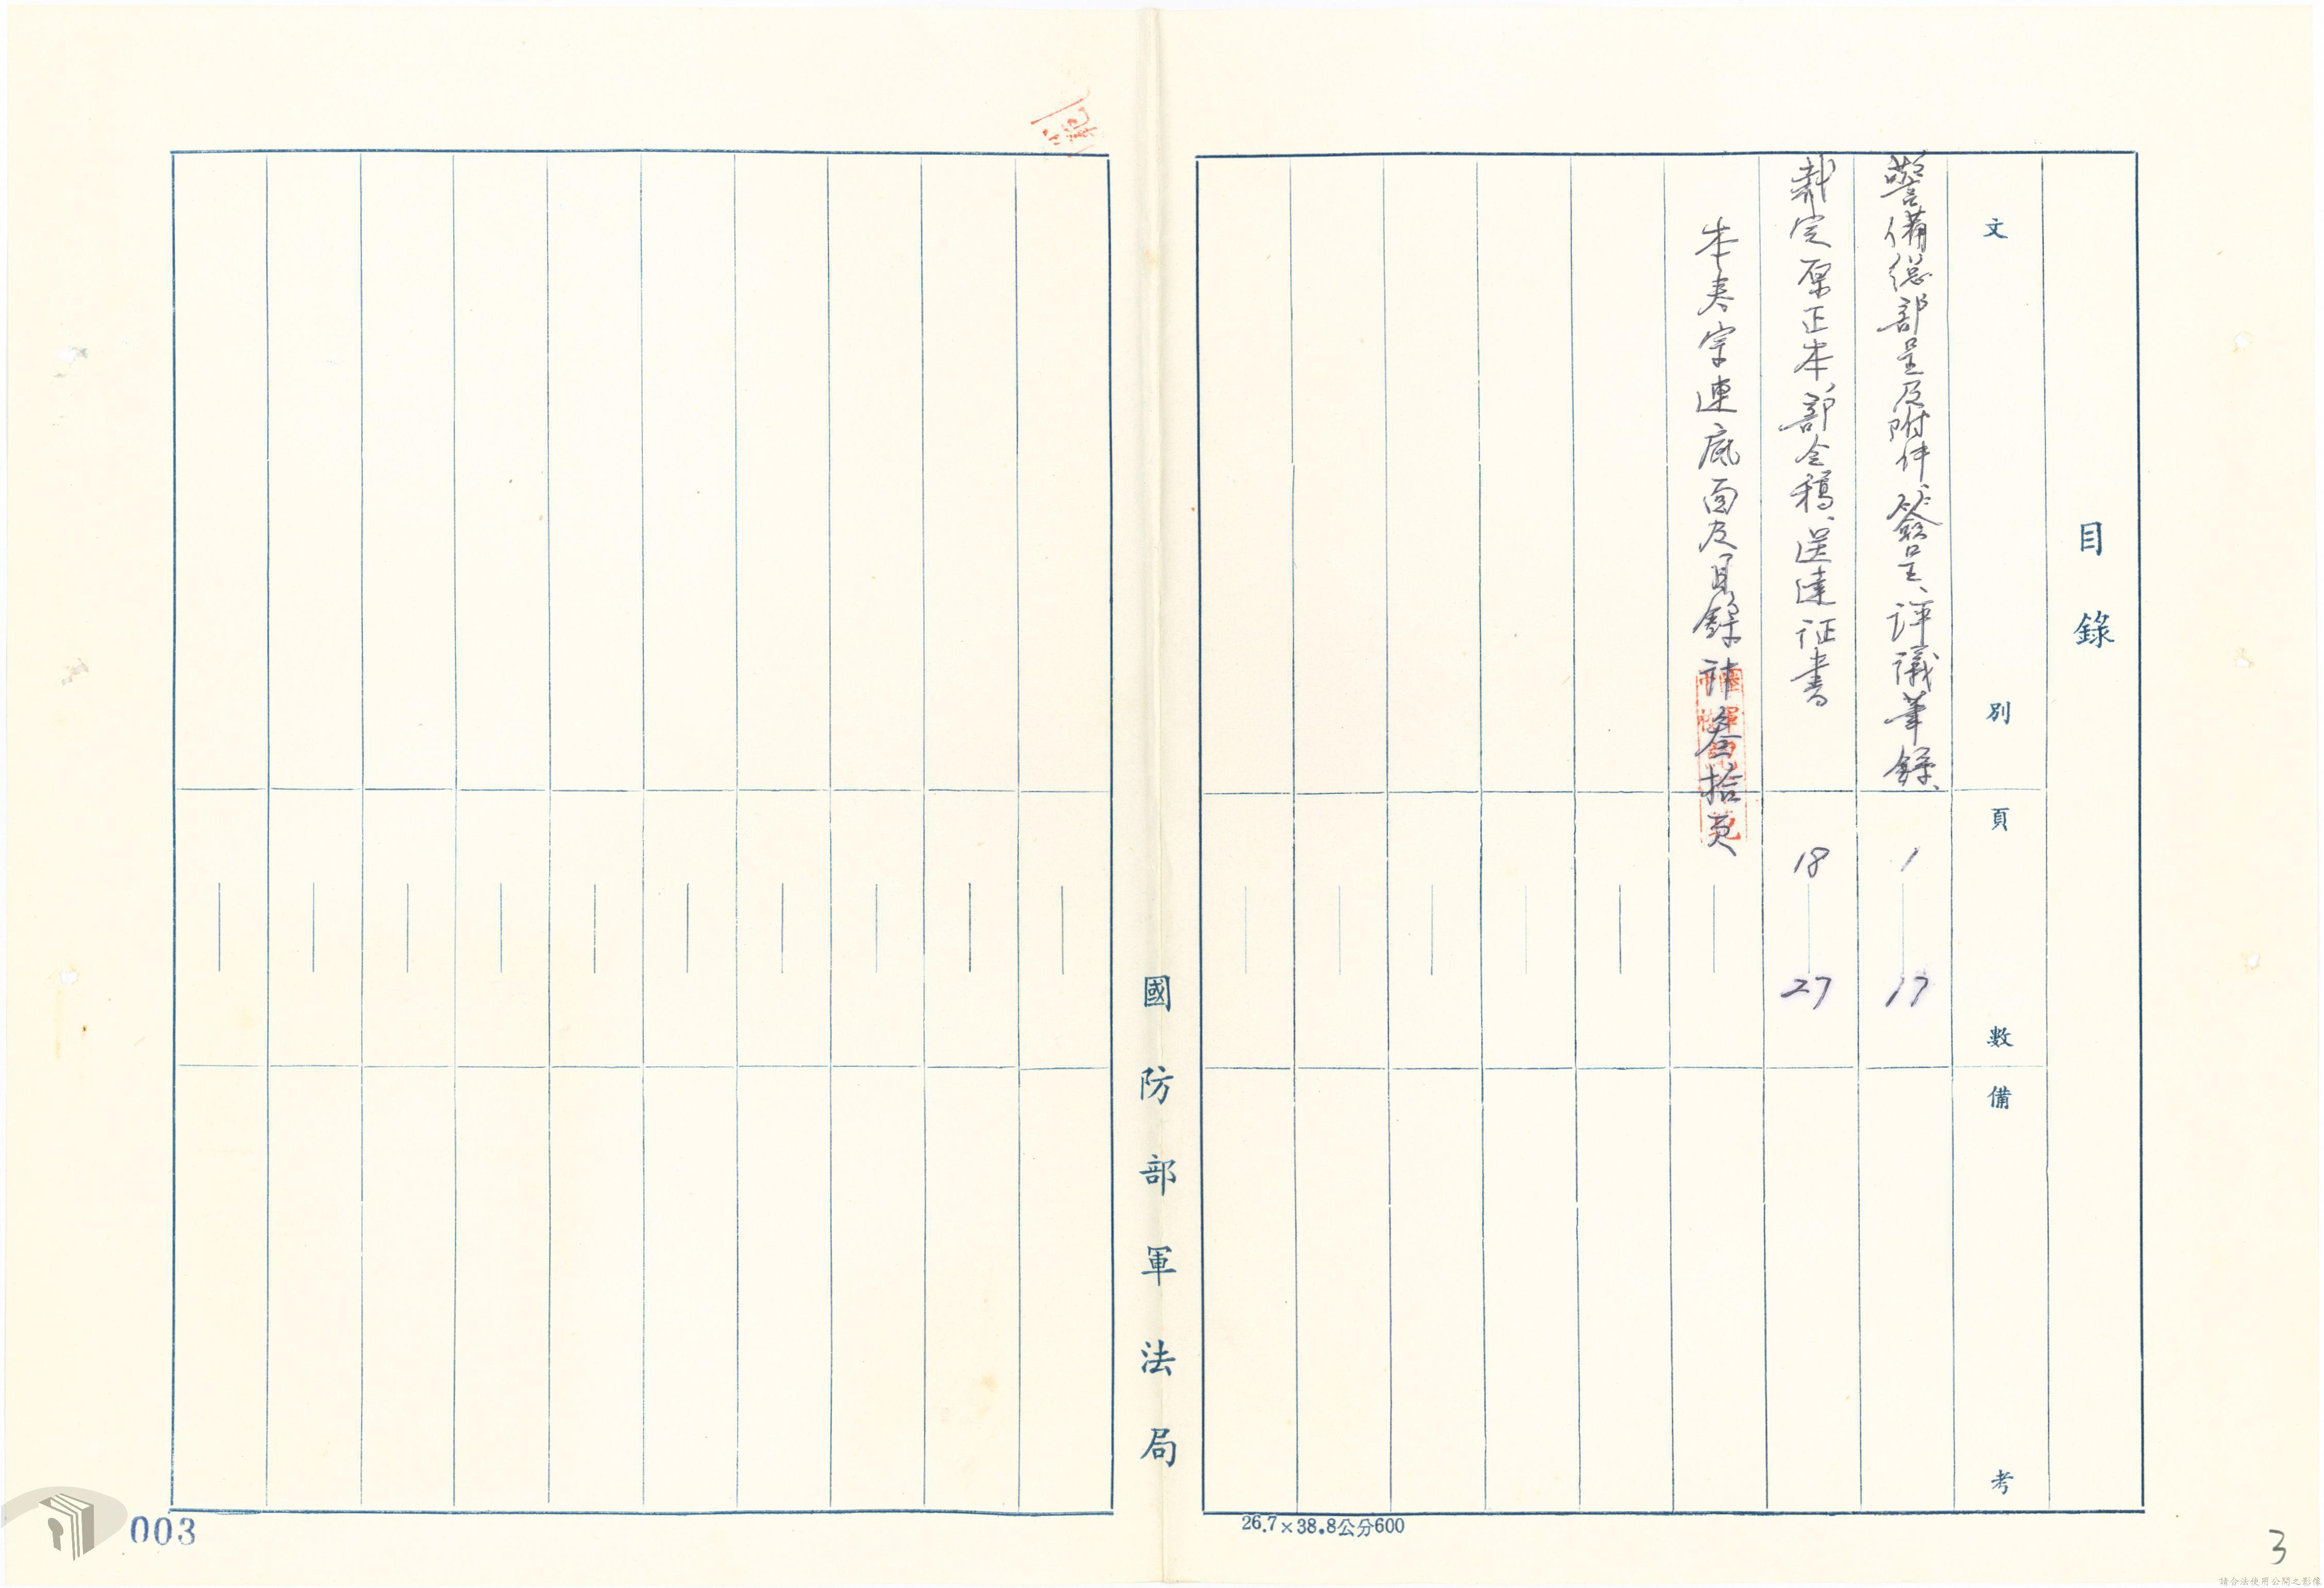 目錄
文別
頁數
備考
警備總部呈及附件、簽呈、評議筆錄、
1
17
裁定原正本、部令稿、送達証書
18
27
本卷宗連底面及目錄計叁拾頁
國防部軍法局
26.7×38.8公分600
003
3
請合法使用公開之影像